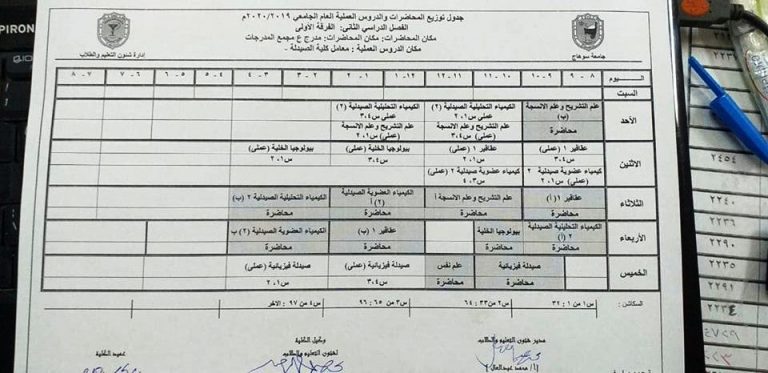 جدول توزيع المحاضرات والدروس العملية العام الجامعي ٢٠٢٠/٢٠١٩م
الفصل الدراسي الثاني: الفرقة الأولى
مكان المحاضرات: مكان المحاضرات: مدرج ع مجمع المدرجات
مكان الدروس العملية : معامل كلية الصيدلة -
جامعة سوهاج
إدارة شئون التعليم والطلاب
اليـــوم ٨ - ٩ ٩ - ١٠ ١٠ - ١١ ١١ - ١٢ ١٢ - ١ ١ - ٢ ٢ - ٣ ٣ - ٤ ٤ - ٥ ٥ - ٦ ٦ - ٧ ٧ - ٨
السبت
الأحد
علم التشريح وعلم الانسجة (ب)
محاضرة
الكيمياء التحليلية الصيدلية (٢) عملي س٢٠١
علم التشريح وعلم الانسجة (عملي) س٣٠٤
الكيمياء التحليلية الصيدلية (٢) عملي س٣٠٤
علم التشريح وعلم الانسجة (عملي) س٢٠١
الاثنين
عقاقير ١ (عملي) س٣٠٤
كيمياء عضوية صيدلية ٢ (عملي) س٢٠١
عقاقير ١ (عملي) س٢٠١
كيمياء عضوية صيدلية ٢ (عملي) س٤٠٣
بيولوجيا الخلية (عملي) س٣٠٤
بيولوجيا الخلية (عملي) س٢٠١
الثلاثاء
عقاقير ١ (أ)
محاضرة
علم التشريح وعلم الانسجة أ
محاضرة
الكيمياء العضوية الصيدلية ٢ (أ)
محاضرة
الكيمياء التحليلية الصيدلية ٢ (ب)
محاضرة
الأربعاء
الكيمياء التحليلية الصيدلية ٢ (أ)
محاضرة
بيولوجيا الخلية
محاضرة
عقاقير ١ (ب)
محاضرة
الكيمياء العضوية الصيدلية (٢) ب
محاضرة
الخميس
صيدلة فيزيائية
محاضرة
علم نفس
محاضرة
صيدلة فيزيائية (عملي)
س٣٠٤
صيدلة فيزيائية (عملي)
س٢٠١
السكاشن: س١ من ١ : ٣٢ س٢ من ٣٣ : ٦٤ س٣ من ٦٥ : ٩٦ س٤ من ٩٧ : الاخر
مدير شئون التعليم والطلاب
وكيل الكلية
لشئون التعليم والطلاب
عميد الكلية
٢٤٥٤
٢٢٤٠
٢٢٣٦
٢٢٩٠
٢٢٣٥
٢٢٩١
٢٢٣٤